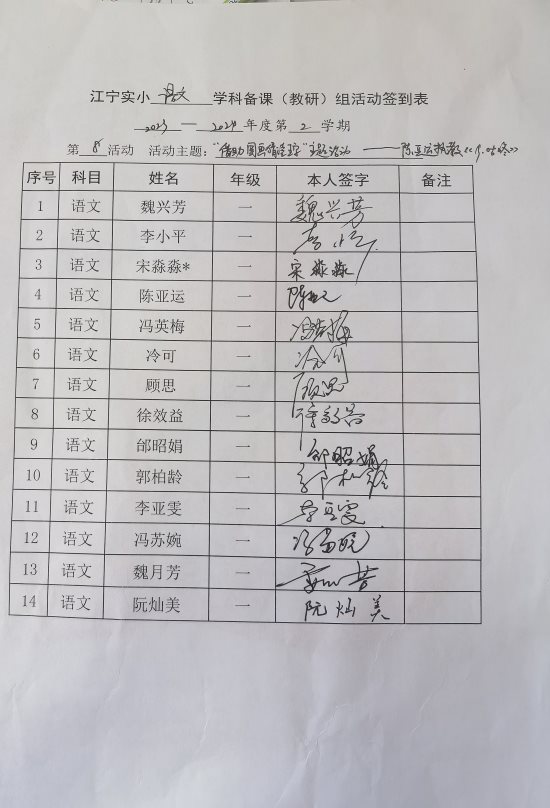 江宁实小 语文 学科备课（教研）组活动签到表
2023 — 2024 年度第 2 学期
第 8 活动 活动主题：“借助图画 ”主题活动 —— 陈亚运执教《 》
序号 科目 姓名 年级 本人签字 备注
1 语文 魏兴芳 一 魏兴芳
2 语文 李小平 一 李小平
3 语文 宋淼淼* 一 宋淼淼
4 语文 陈亚运 一 陈亚运
5 语文 冯英梅 一 冯英梅
6 语文 冷可 一 冷可
7 语文 顾思 一 顾思
8 语文 徐效益 一 徐效益
9 语文 邰昭娟 一 邰昭娟
10 语文 郭柏龄 一 郭柏龄
11 语文 李亚雯 一 李亚雯
12 语文 冯苏婉 一 冯苏婉
13 语文 魏月芳 一
14 语文 阮灿美 一 阮灿美